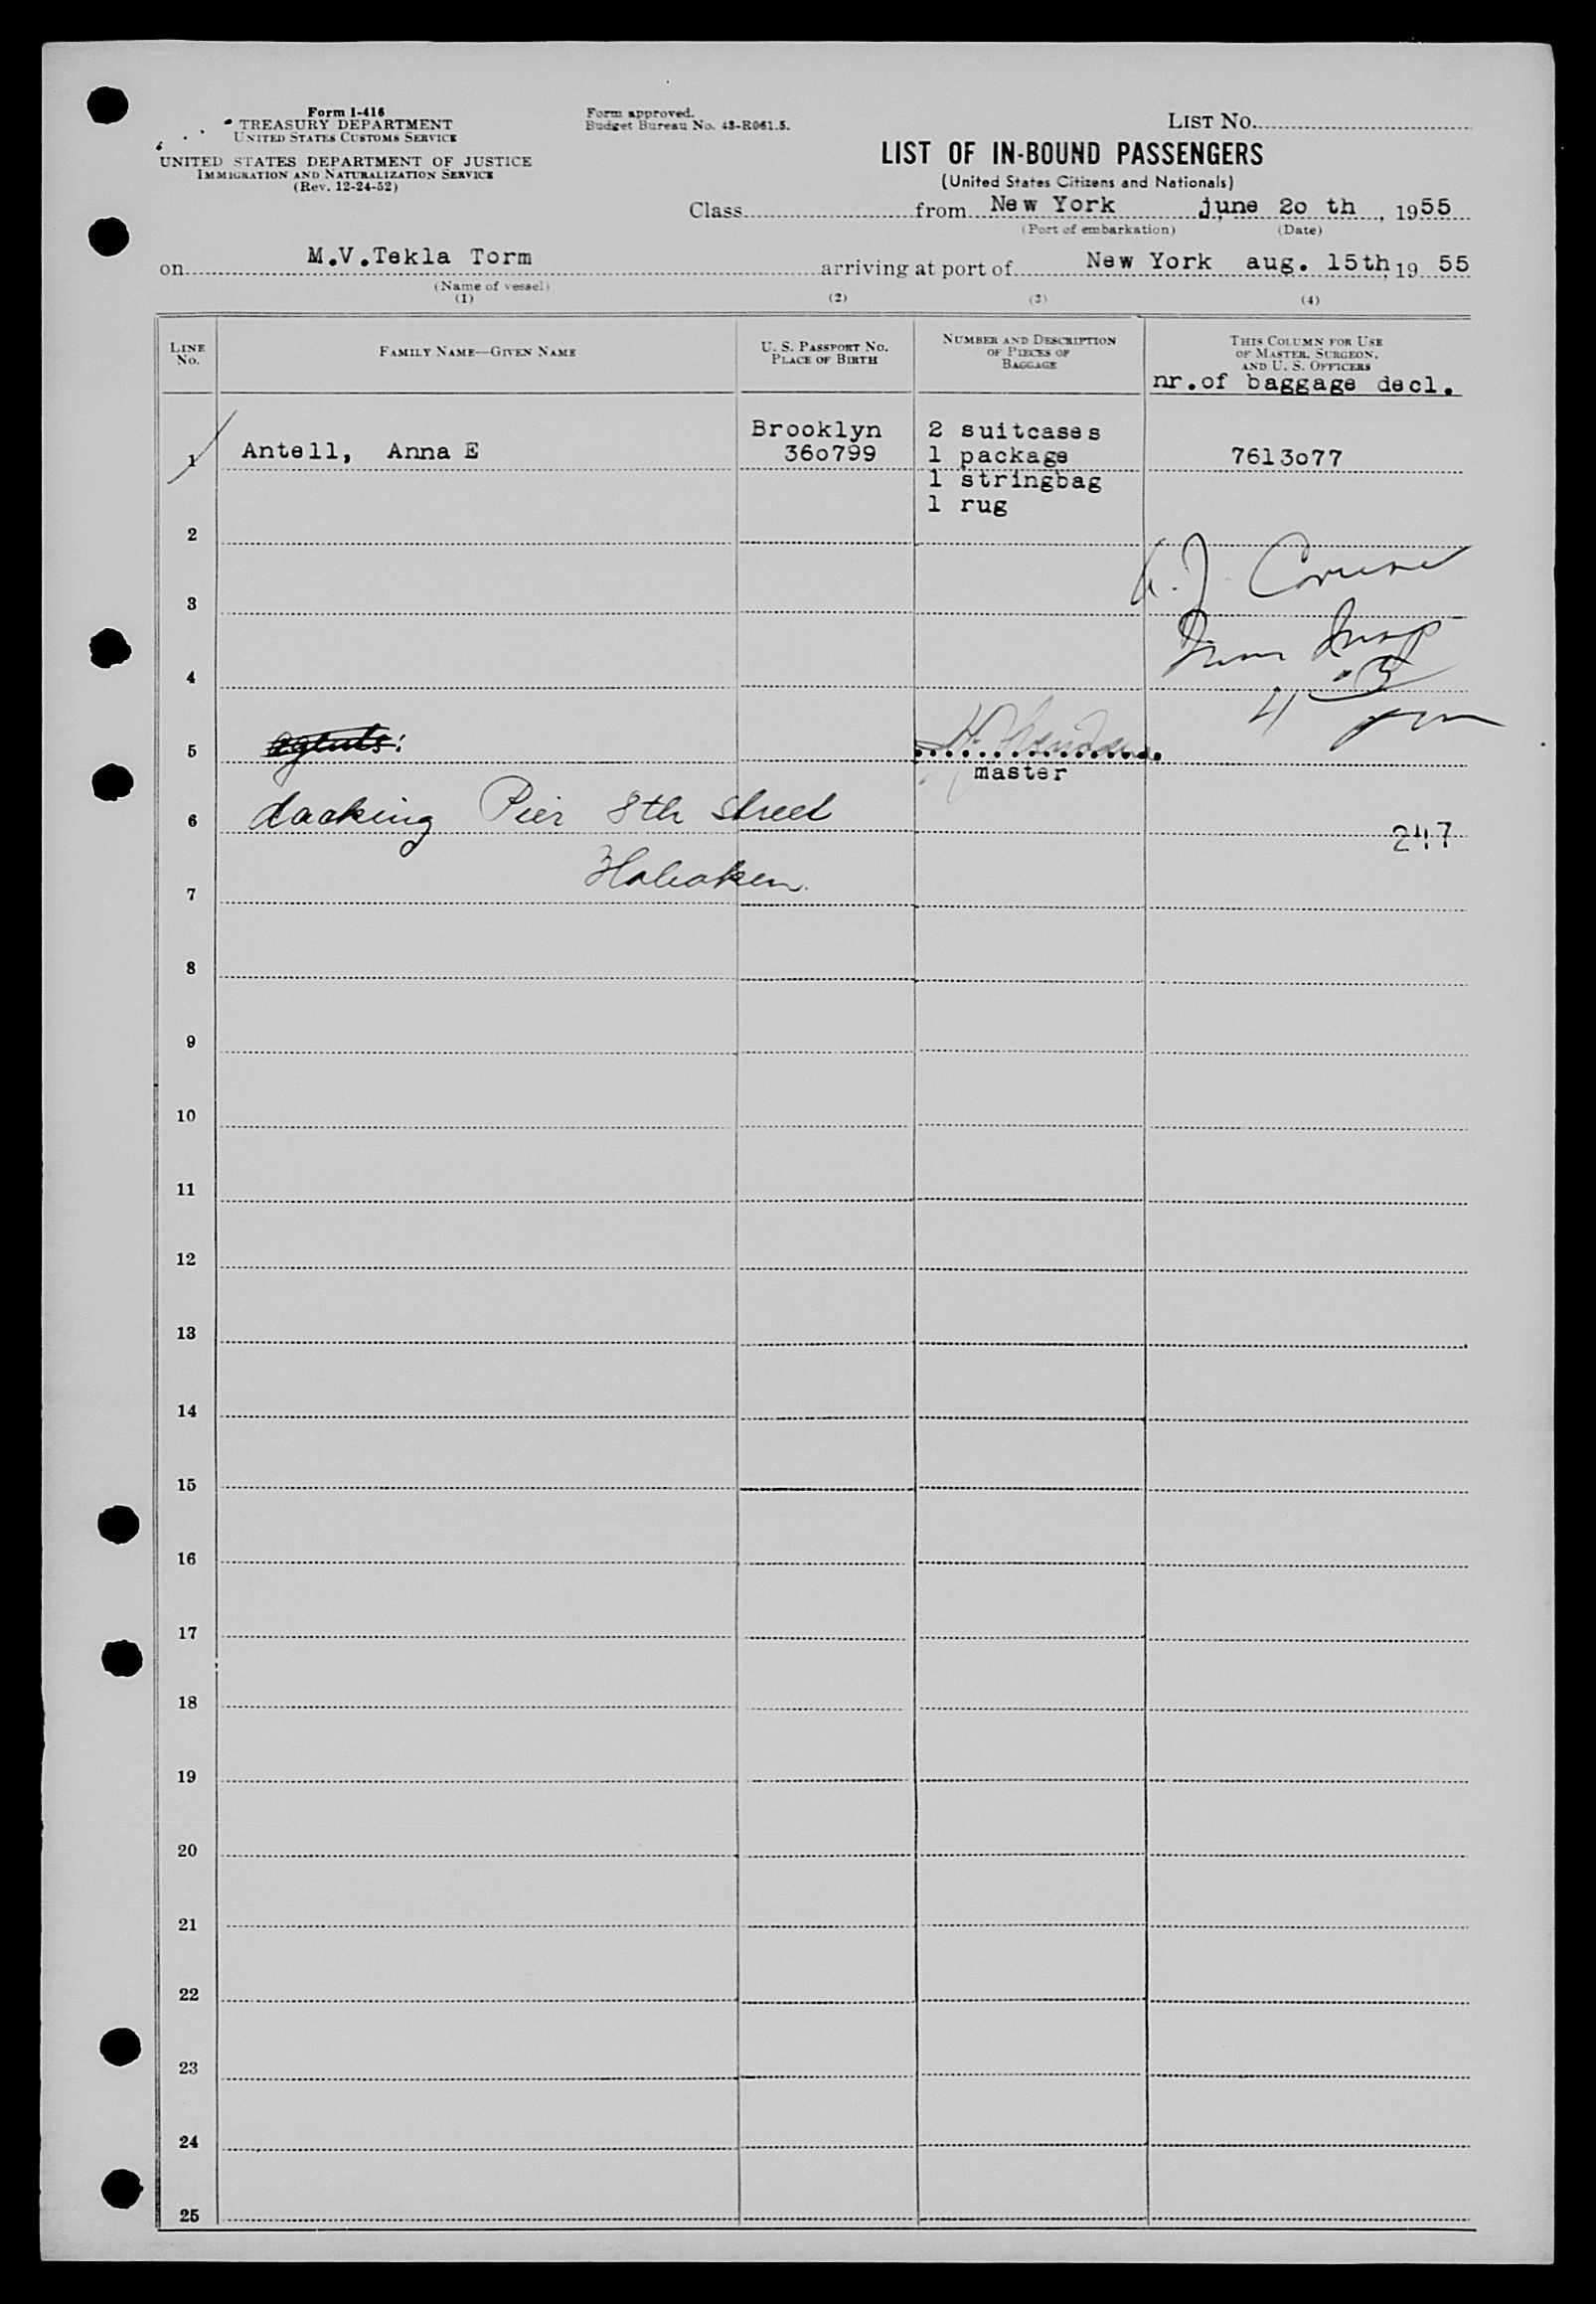 Form I-416
TREASURY DEPARTMENT
UNITED STATES CUSTOMS SERVICE
UNITED STATES DEPARTMENT OF JUSTICE
IMMIGRATION AND NATURALIZATION SERVICE
(Rev. 12-24-52)
Form approved.
Budget Bureau No. 43-R061.5.
LIST No.
LIST OF IN-BOUND PASSENGERS
(United States Citizens and Nationals)
Class from New York june 2o th, 1955
(Port of embarkation) (Date)
on M.V.Tekla Torm arriving at port of New York aug. 15th, 19 55
(Name of vessel)
(1) (2) (3) (4)
LINE No.
FAMILY NAME—GIVEN NAME
U. S. PASSPORT No.
PLACE OF BIRTH
NUMBER AND DESCRIPTION
OF PIECES OF
BAGGAGE
THIS COLUMN FOR USE
OF MASTER, SURGEON,
AND U. S. OFFICERS
nr.of baggage decl.
Brooklyn 2 suitcases
1 Antell, Anna E 36o799 1 package 7613o77
1 stringbag
1 rug
2
3
4
5 agents:
master
6 docking Pier 8th street
247
Hoboken
7
8
9
10
11
12
13
14
15
16
17
18
19
20
21
22
23
24
25